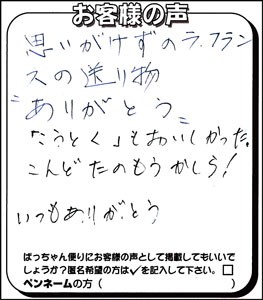 お客様の声
思いがけずのラ・フラン
スの送り物
"ありがとう"
「こうとく」もおいしかった。
こんどたのもうかしら!
いつもありがとう
ばっちゃん便りにお客様の声として掲載してもいいで
しょうか?匿名希望の方は✓を記入して下さい。□
ペンネームの方(　　　　)